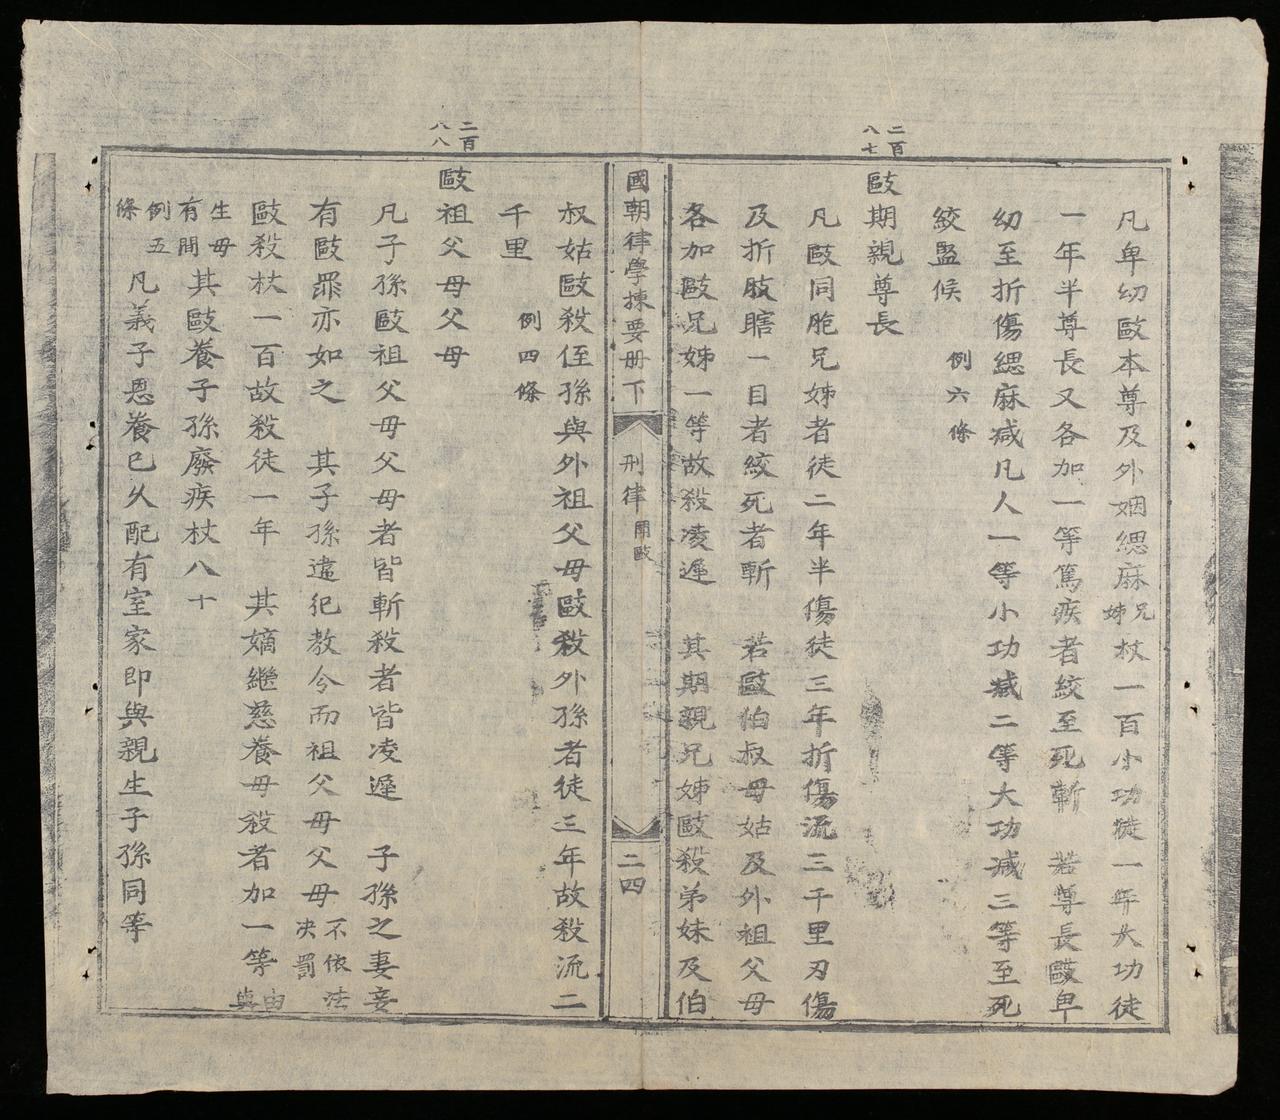 凡卑幼毆本尊及外姻緦麻兄姊杖一百小功徒一年大功徒
一年半尊長又各加一等篤疾者絞至死斬　若尊長毆卑
幼至折傷緦麻减凡人一等小功减二等大功减三等至死
絞監候　例六條
二百八七
毆期親尊長
凡毆同胞兄姊者徒二年半傷徒三年折傷流三千里刃傷
及折肢瞎一目者絞死者斬　若毆伯叔母姑及外祖父母
各加毆兄姊一等故殺凌遲　其期親兄姊毆殺弟妹及伯
國朝律學揀要册下　刑律　鬥毆　二四
叔姑毆殺侄孫與外祖父母毆殺外孫者徒三年故殺流二
千里　例四條
二百八八
毆祖父母父母
凡子孫毆祖父母父母者皆斬殺者皆凌遲　子孫之妻妾
有毆罪亦如之　其子孫違犯教令而祖父母父母不依法决罰
毆殺杖一百故殺徒一年　其嫡繼慈養母殺者加一等由與
生母有間其毆養子孫廢疾杖八十
例五條　凡義子恩養已久配有室家即與親生子孫同等